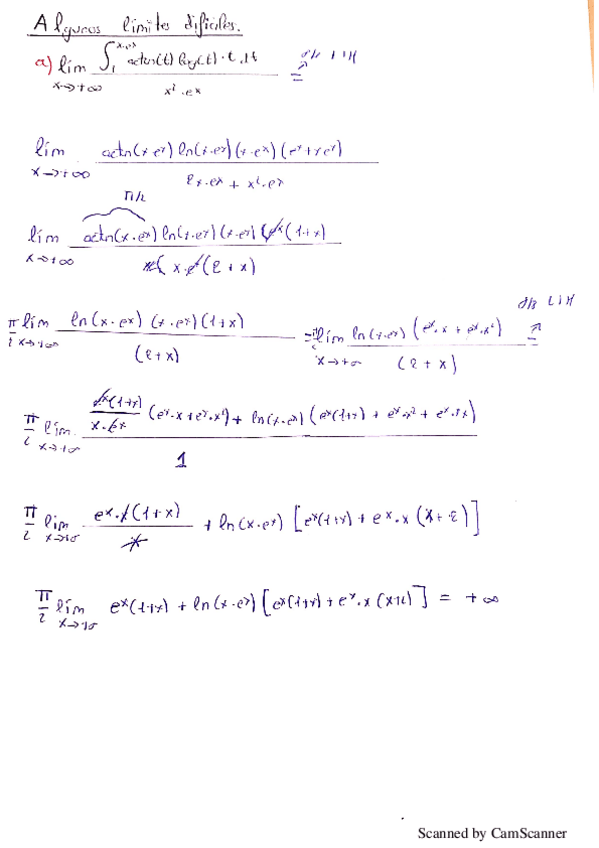 Algunos límites difíciles.
a) lím x→+∞ ∫₁^(x·eˣ) actn(t) log(t)·t·dt / x²·eˣ =
lím x→+∞ actn(x·eˣ) ln(x·eˣ)(x·eˣ)(eˣ+xeˣ) / 2x·eˣ + x²·eˣ
π/2
lím x→+∞ actn(x·eˣ) ln(x·eˣ)(x·eˣ)(eˣ(1+x) / x·eˣ(2+x)
π/2 lím x→+∞ ln(x·eˣ)(x·eˣ)(1+x) / (2+x) = lím x→+∞ ln(x·eˣ)(eˣ·x + eˣ·x²) / (2+x) =
π/2 lím eˣ(1+x) / x·eˣ (eˣ·x+eˣ·x²) + ln(x·eˣ)(eˣ(1+x) + eˣ·x² + eˣ·2x) / 1
π/2 lím x→+∞ eˣ·x(1+x) / x + ln(x·eˣ)[eˣ(1+x) + eˣ·x(x+2)]
π/2 lím x→+∞ eˣ(1+x) + ln(x·eˣ)[eˣ(1+x)+eˣ·x(x+2)] = +∞
Scanned by CamScanner